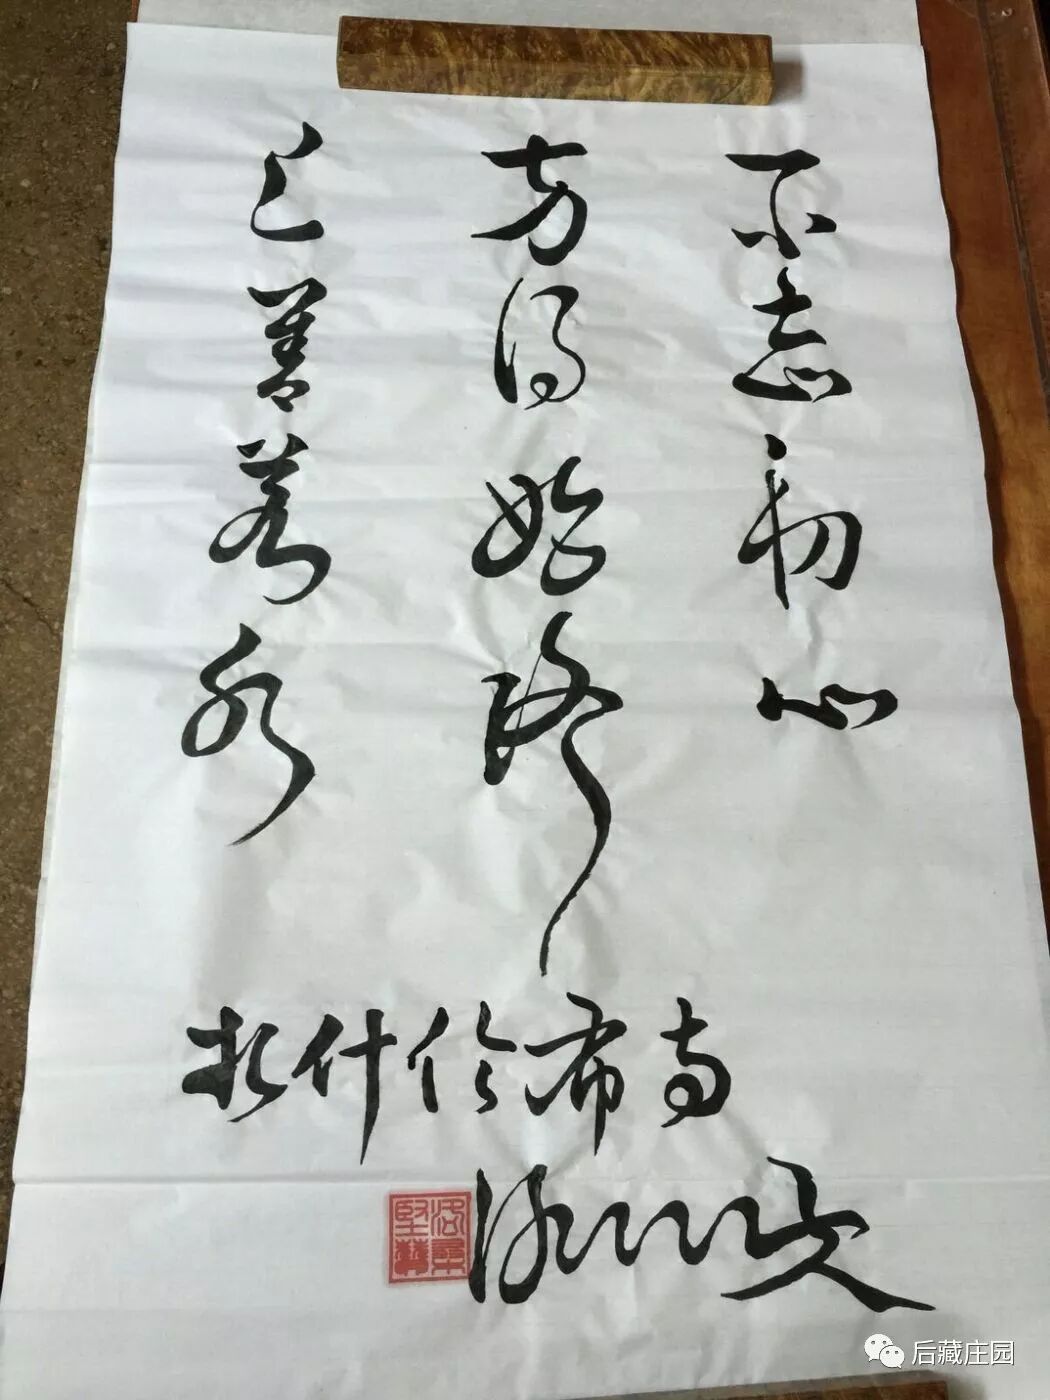 不忘初心
方得始终
上善若水
扎什伦布寺
后藏庄园